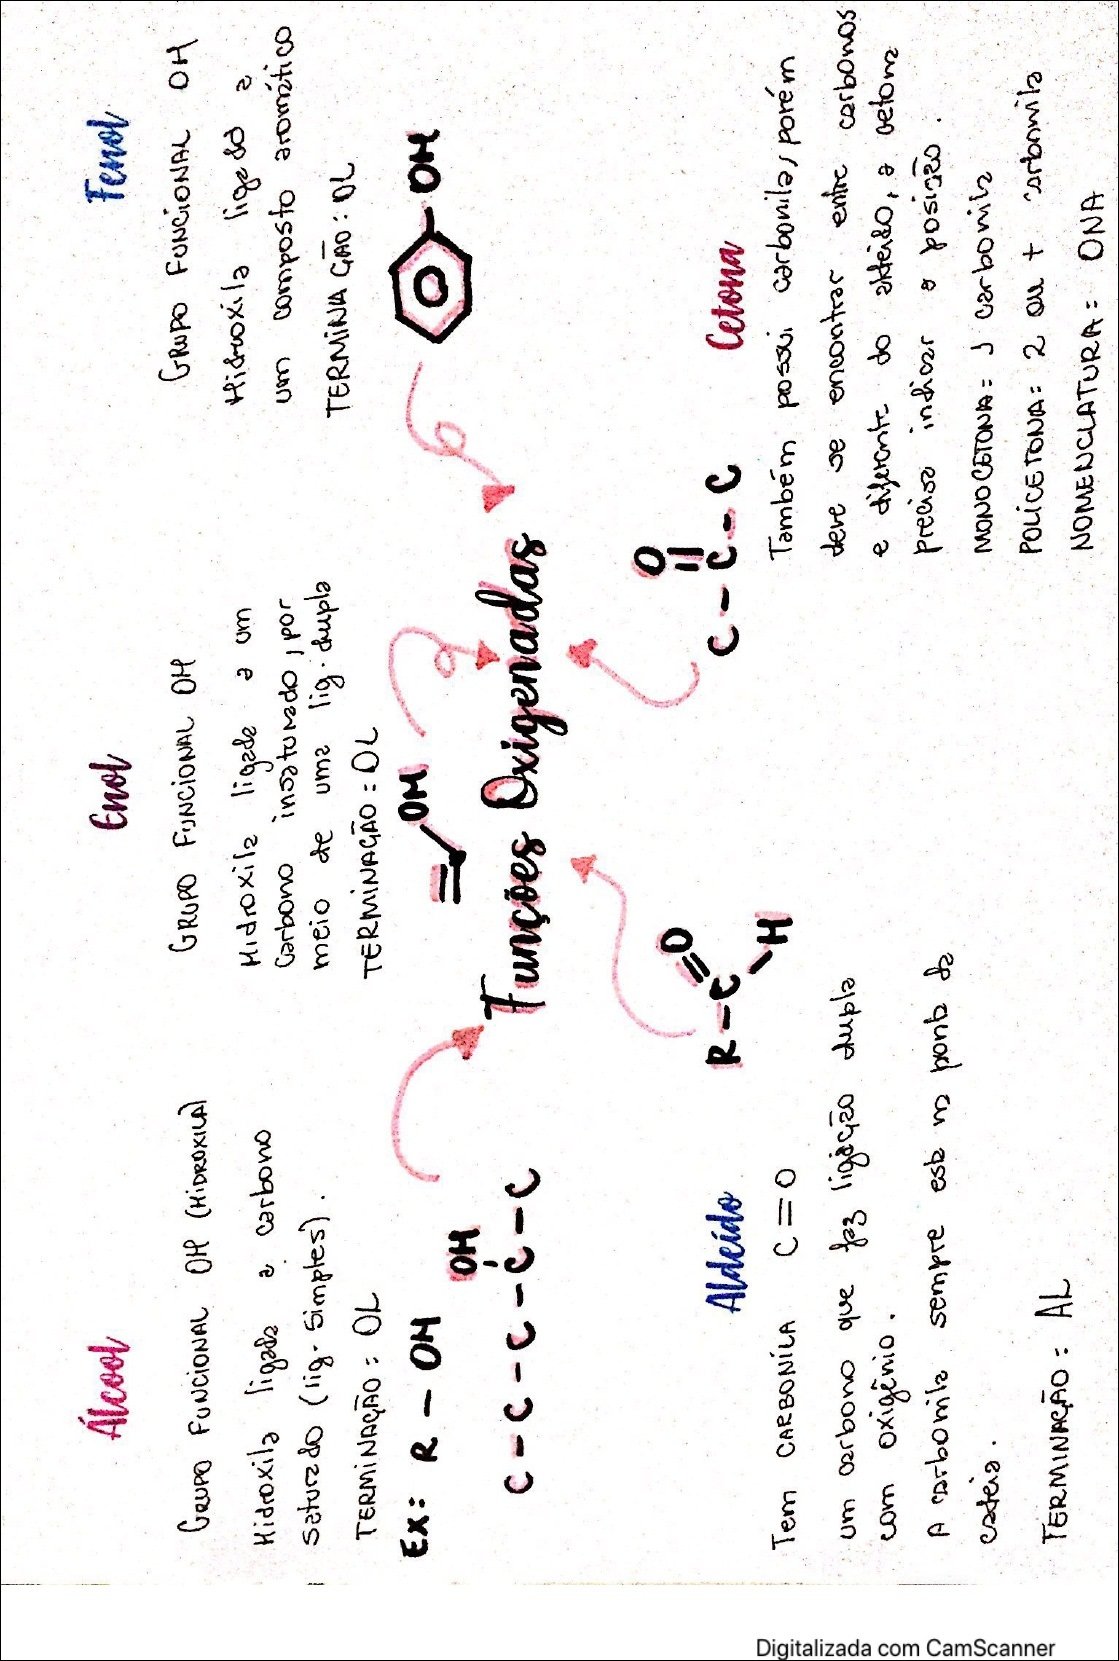 Álcool
GRUPO FUNCIONAL OH (HIDROXILA)
Hidroxila ligada a carbono
saturado (lig. simples).
TERMINAÇÃO: OL
Ex: R - OH
OH
C - C - C - C - C
Enol
GRUPO FUNCIONAL OH
Hidroxila ligada a um
carbono insaturado, por
meio de uma lig. dupla
TERMINAÇÃO: OL
OH
Fenol
GRUPO FUNCIONAL OH
Hidroxila ligada a
um composto aromático
TERMINAÇÃO: OL
OH
Funções Oxigenadas
Aldeído
R - C
O
H
Tem CARBONILA C = O
um carbono que faz ligação dupla
com oxigênio.
A carbonila sempre está na ponta da
cadeia.
TERMINAÇÃO: AL
Cetona
O
C - C - C
Também possui carbonila, porém
deve se encontrar entre carbonos
e diferente do aldeído, a cetona
precisa indicar a posição.
MONOCETONA = 1 carbonila
POLICETONA = 2 ou + carbonila
NOMENCLATURA = ONA
Digitalizada com CamScanner